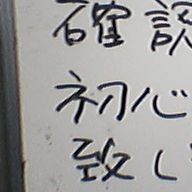 確認
初心
致し